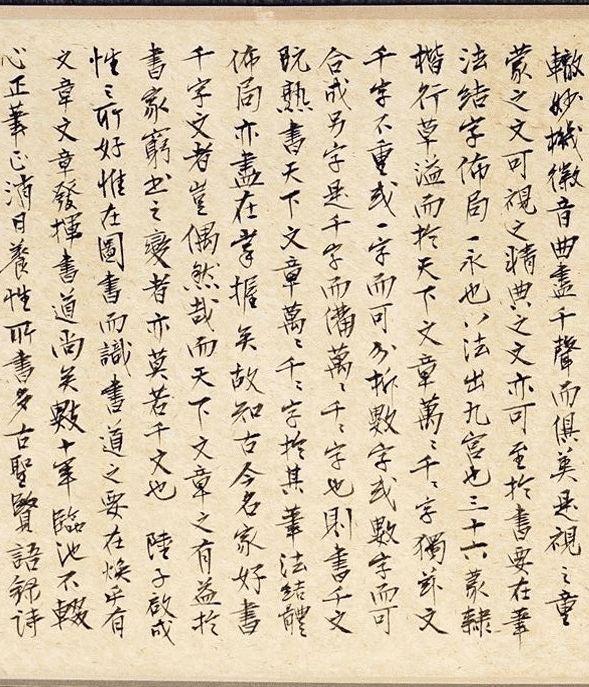 轍妙機徽音曲盡千聲而俱美是視之童
蒙之文可視之精典之文亦可至於書要在筆
法結字佈局一永也八法出九宮也三十六蒙隸
楷行草溢而於天下文章萬〻千〻字獨茲文
千字不重或一字而可分拆數字或數字而可
合成另字是千字而備萬〻千〻字也則書千文
既熟書天下文章萬〻千〻字於其筆法結體
佈局亦盡在掌握矣故知古今名家好書
千字文者豈偶然哉而天下文章之有益於
書家窮書之變者亦莫若千文也 陸子啟成
性之所好惟在圖書而識書道之要在煥乎有
文章文章發揮書道尚矣數十年臨池不輟
心正筆正消日養性所書多古聖賢語錄詩